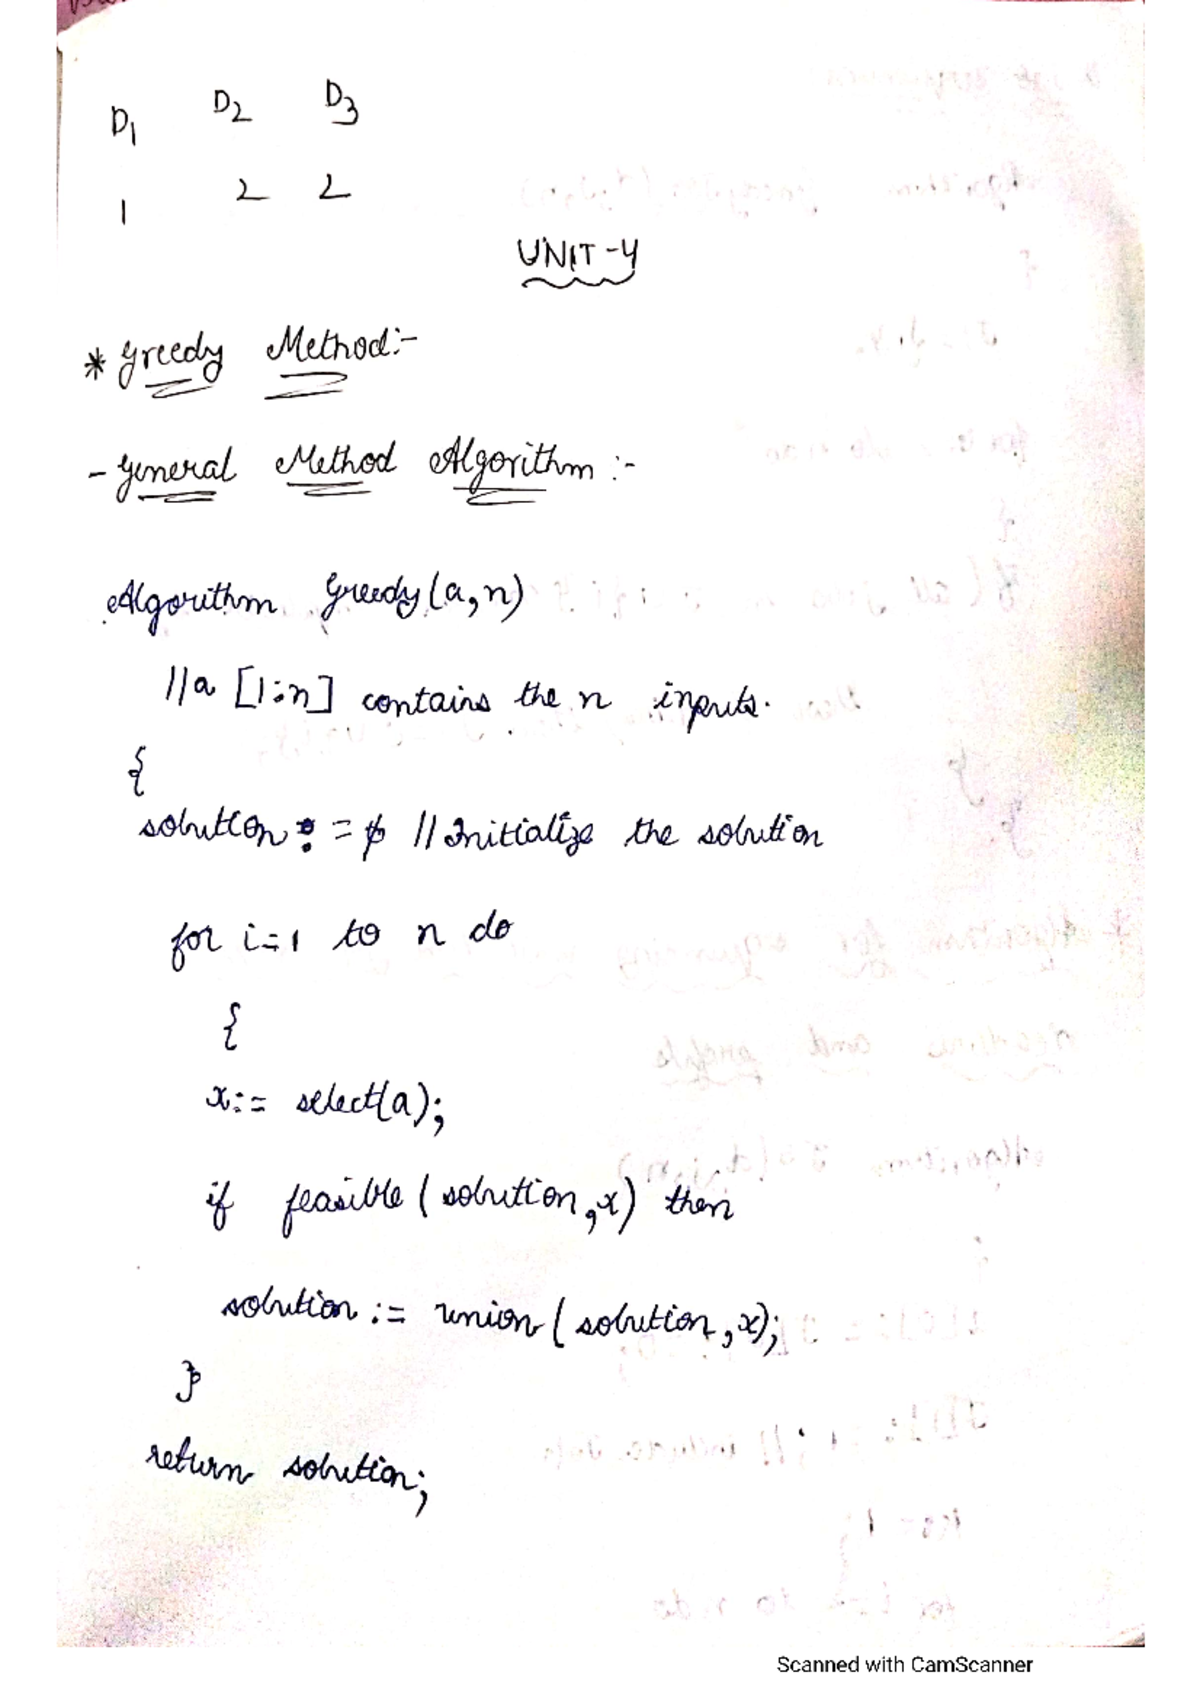 D1 D2 D3
1 2 2
UNIT-4
* Greedy Method:-
- General Method Algorithm :-
Algorithm Greedy(a,n)
//a [1:n] contains the n inputs.
{
solution := φ //Initialize the solution
for i=1 to n do
{
x:= select(a);
if feasible(solution,x) then
solution := union(solution,x);
}
return solution;
Scanned with CamScanner